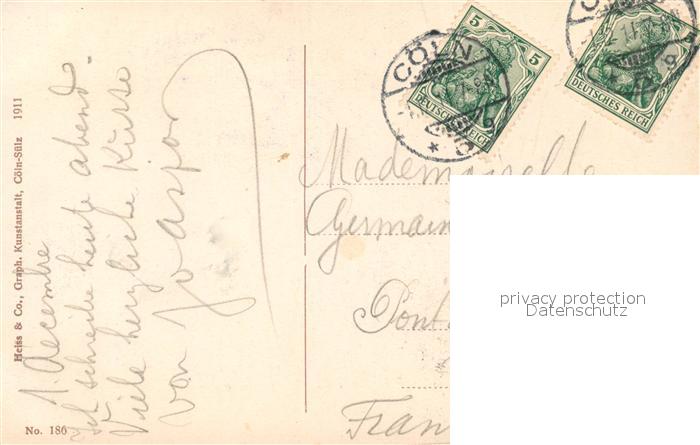 Heiss & Co., Graph. Kunstanstalt, Cöln-Sülz 1911
No. 186
1 Decembre
Ich schreibe heute abend.
Viele herzliche Küsse
von
CÖLN
5 5
DEUTSCHES REICH
CÖLN
DEUTSCHES REICH
Mademoiselle
German
Pont
Fran
privacy protection
Datenschutz